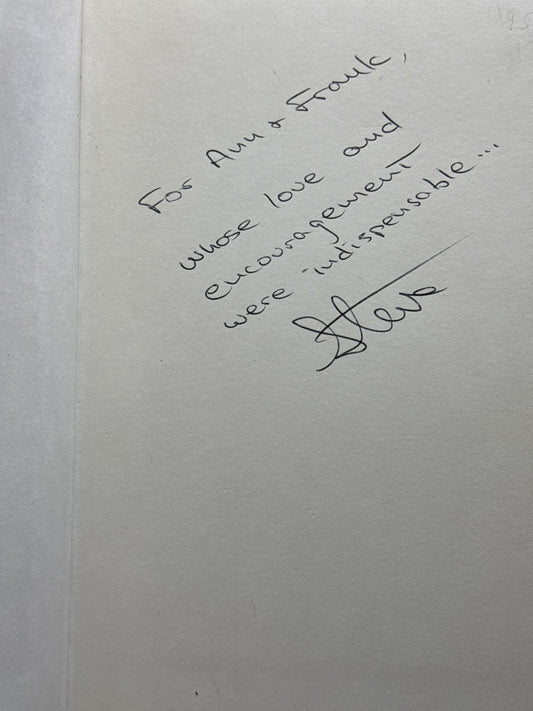 For Ann & Frank,
whose love and
encouragement
were indispensable...
Steve